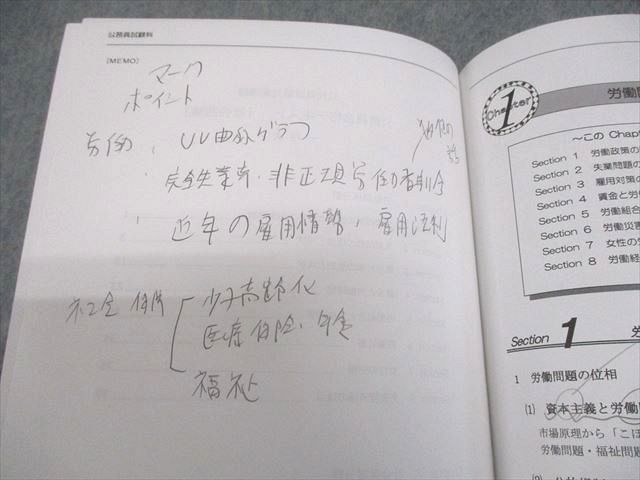 公務員試験科
[MEMO]
マーク
ポイント
労働、UV曲線グラフ
完全失業率・非正規労働者割合
近年の雇用情勢、雇用法制
社会保障
少子高齢化
医療保険、年金
福祉
Chapter 1
労働問
～この Chap
Section 1 労働政策の
Section 2 失業問題の
Section 3 雇用対策の
Section 4 賃金と労
Section 5 労働組合
Section 6 労働災害
Section 7 女性の労
Section 8 労働経
Section 1 労
1 労働問題の位相
(1) 資本主義と労働
市場原理から「こほ
労働問題・福祉問題